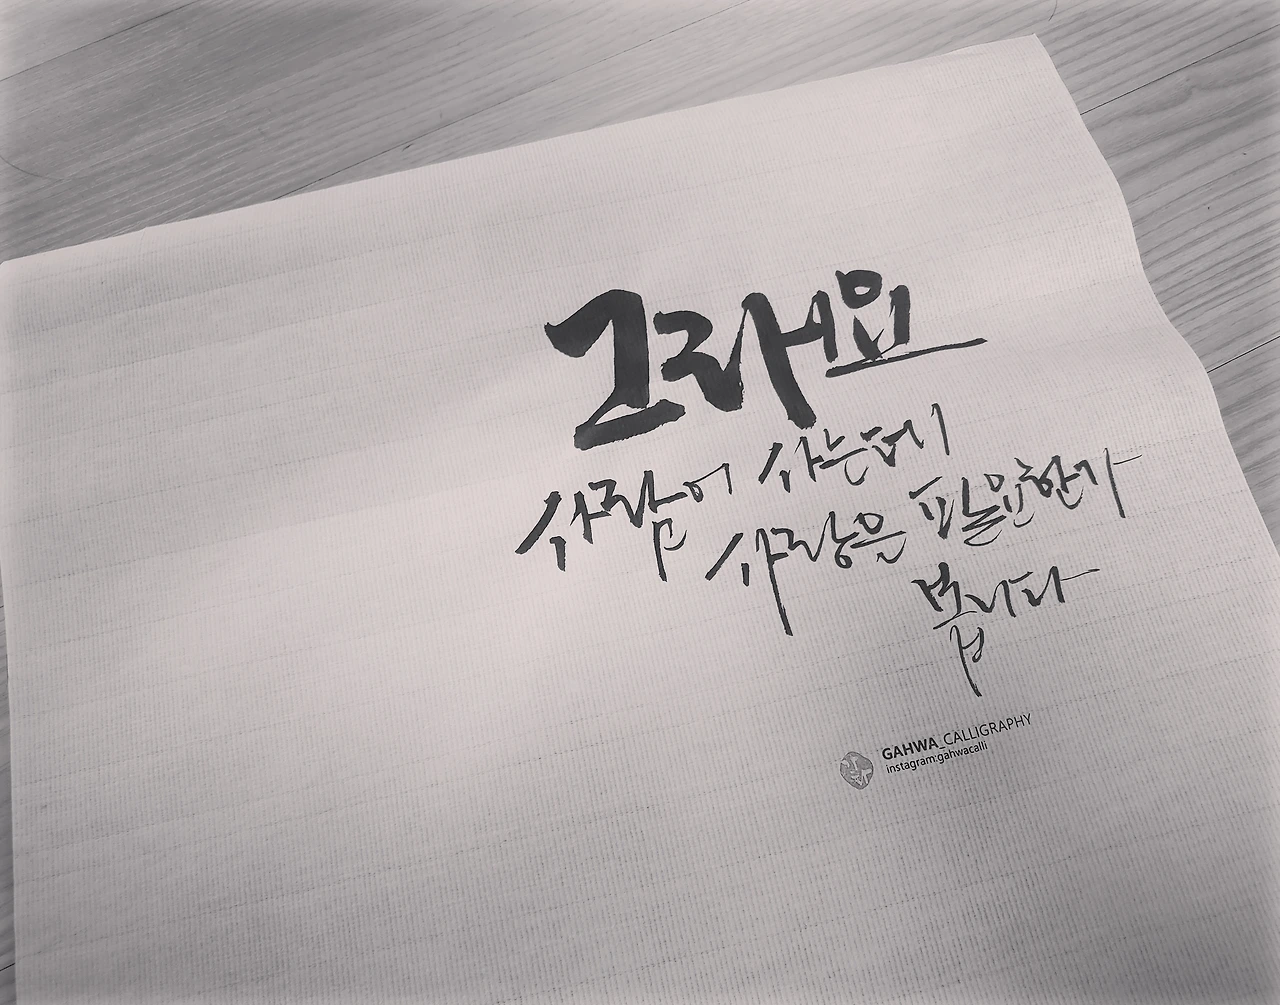 그래요
사람이 사는데
사랑은 필요한가
봅니다
GAHWA_CALLIGRAPHY
instagram:gahwacalli